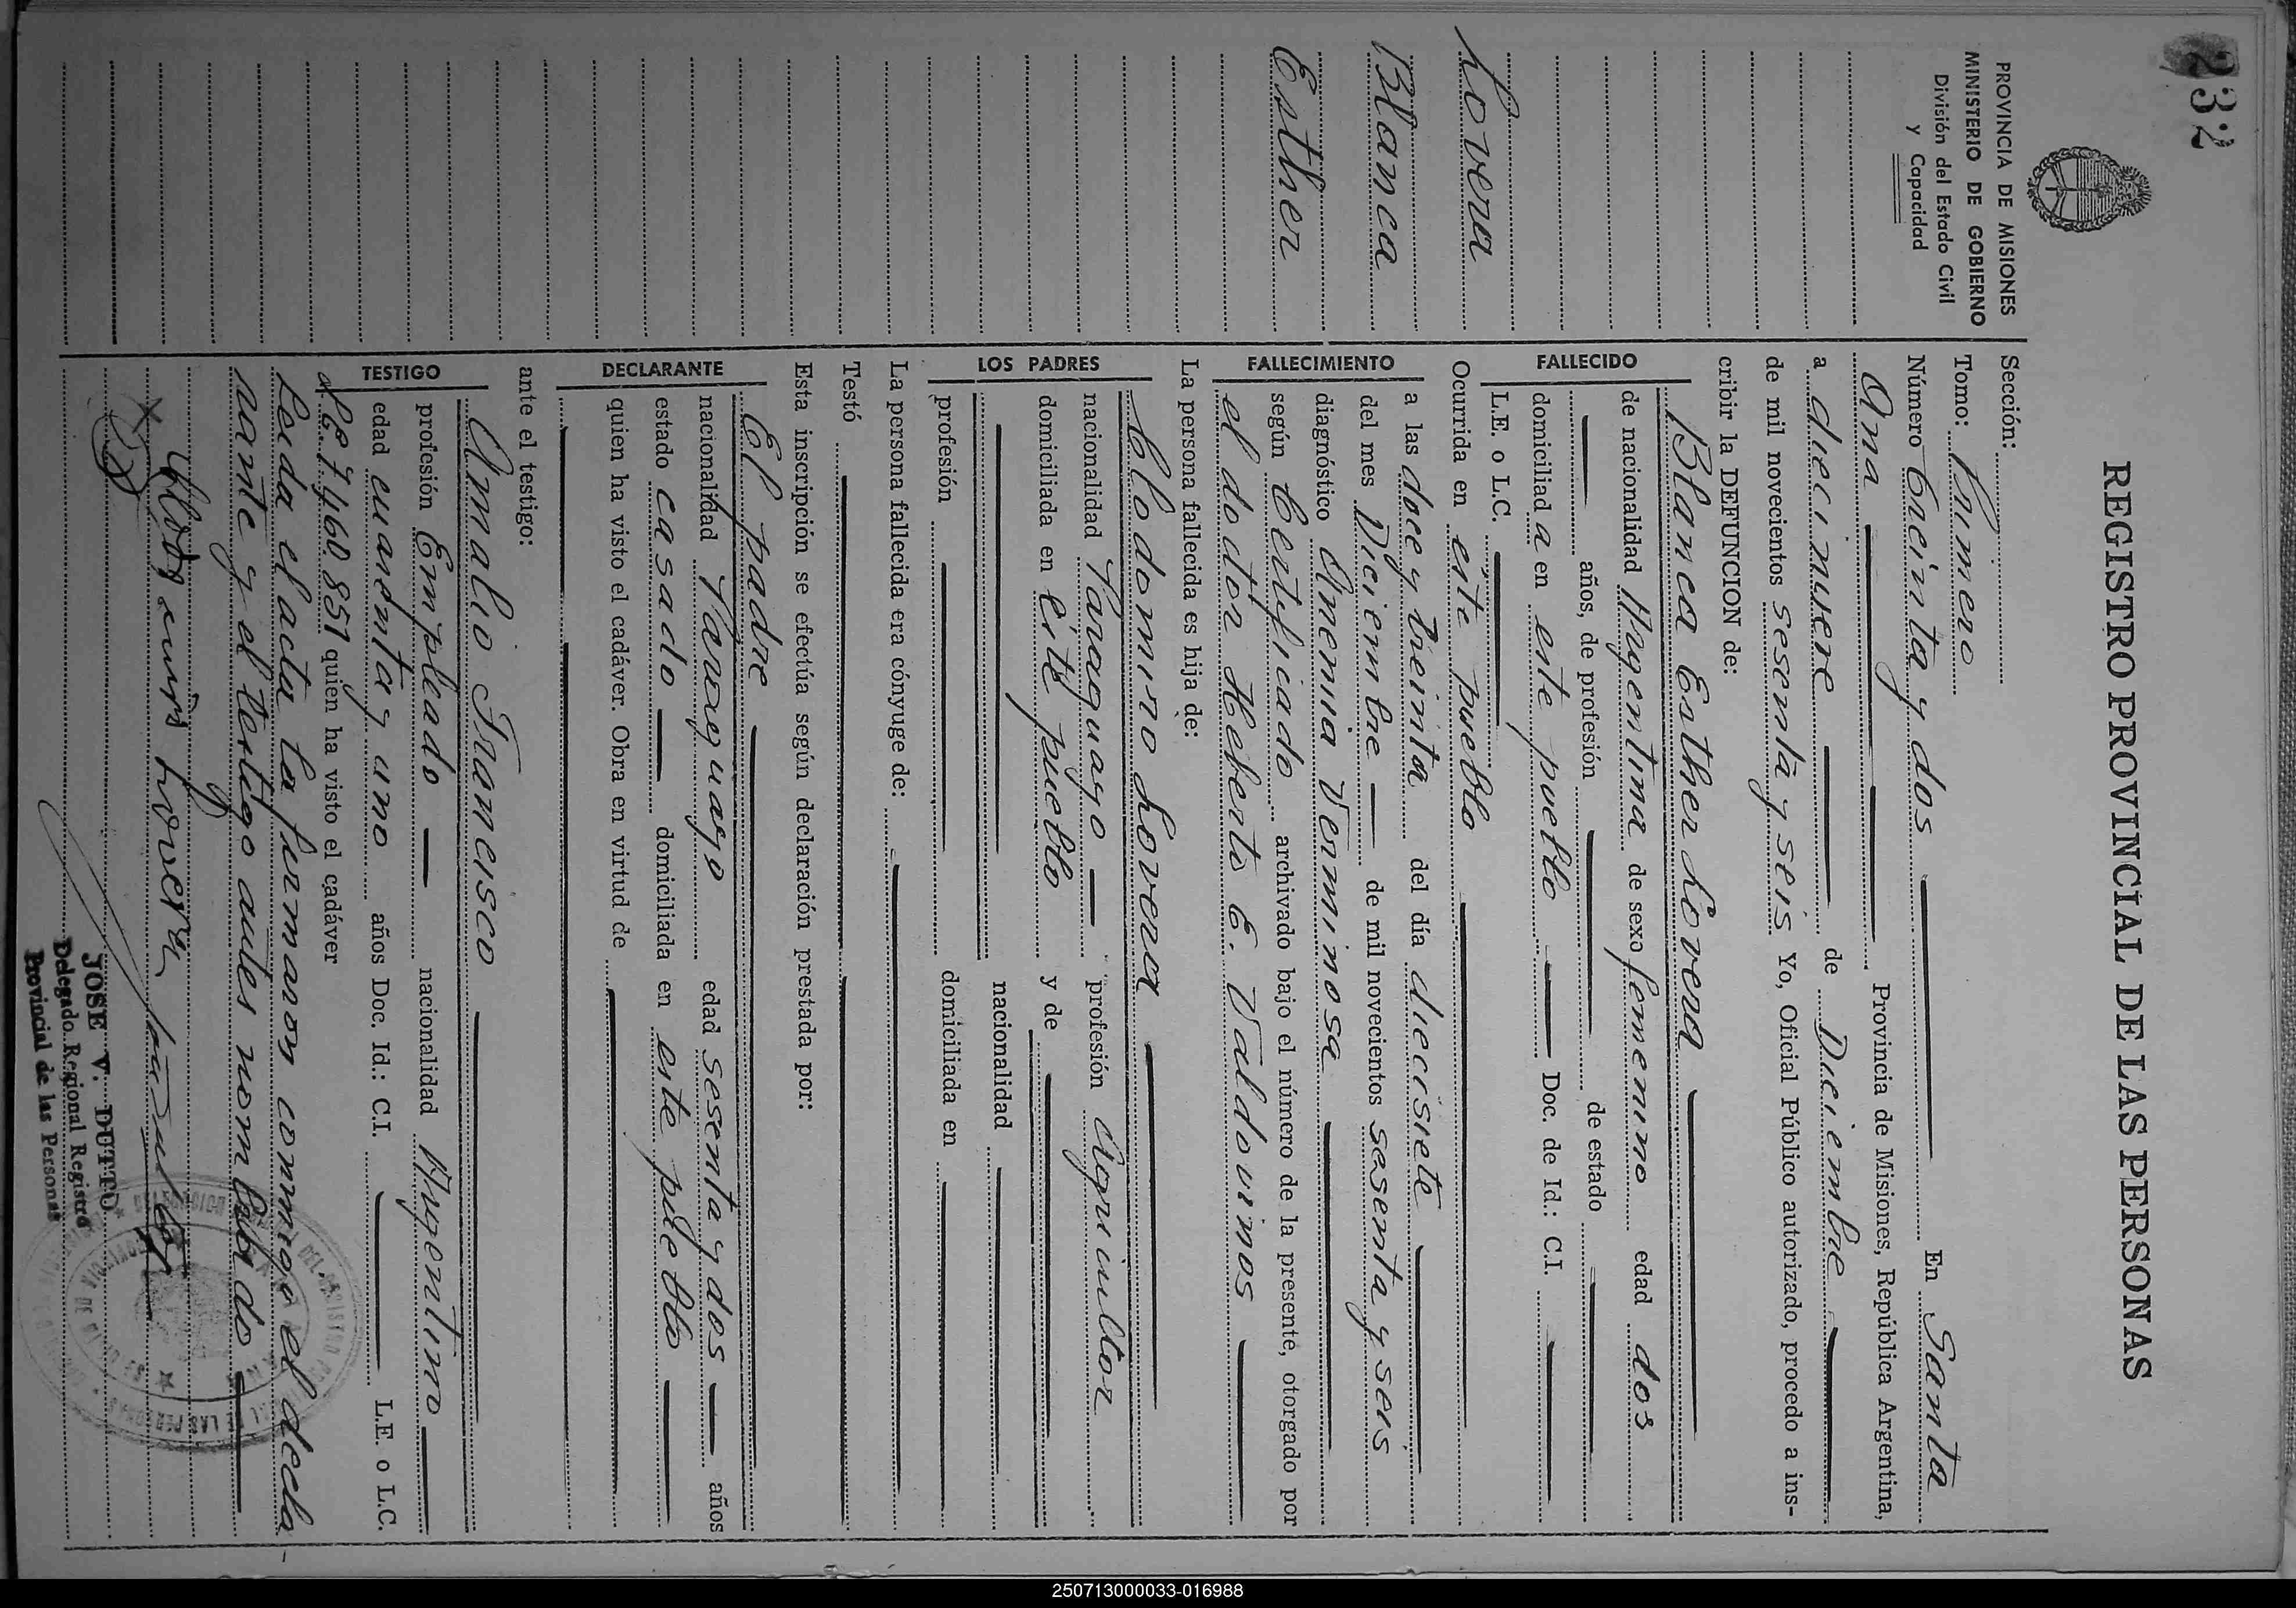 232
REGISTRO PROVINCIAL DE LAS PERSONAS
PROVINCIA DE MISIONES
MINISTERIO DE GOBIERNO
División del Estado Civil
y Capacidad
Lovera
Blanca
Esther
Sección:
Tomo: Primero
Número Cacinta y dos En Santa
Ana Provincia de Misiones, República Argentina,
a diecinueve de Diciembre
de mil novecientos sesenta y seis Yo, Oficial Público autorizado, procedo a ins-
cribir la DEFUNCION de:
FALLECIDO
Blanca Esther Lovera
de nacionalidad Argentina de sexo femenino edad dos
años, de profesión de estado
domiciliad a en este pueblo Doc. de Id.: C.I.
L.E. o L.C.
Ocurrida en este pueblo
FALLECIMIENTO
a las doce y treinta del día diecisiete
del mes Diciembre de mil novecientos sesenta y seis
diagnóstico Anemia Verminosa
según Certificado archivado bajo el número de la presente, otorgado por
el doctor Heberto E. Valdovinos
La persona fallecida es hija de:
LOS PADRES
Clodomiro Lovera
nacionalidad Paraguayo profesión Agricultor
domiciliada en éste pueblo y de
nacionalidad
profesión domiciliada en
La persona fallecida era cónyuge de:
Testó
Esta inscripción se efectúa según declaración prestada por:
DECLARANTE
El padre
nacionalidad Paraguayo edad sesenta y dos años
estado casado domiciliada en este pueblo
quien ha visto el cadáver. Obra en virtud de
ante el testigo:
TESTIGO
Amalio Francisco
profesión Empleado nacionalidad Argentino
edad cuarenta y uno años Doc. Id.: C.I. L.E. o L.C.
7.460.851 quien ha visto el cadáver
Leida el acta la firmaron conmigo el decla
rante y el testigo antes nombrado
Lovera
JOSE V. DUTTO
Delegado Regional Registro
Provincial de las Personas
250713000033-016988